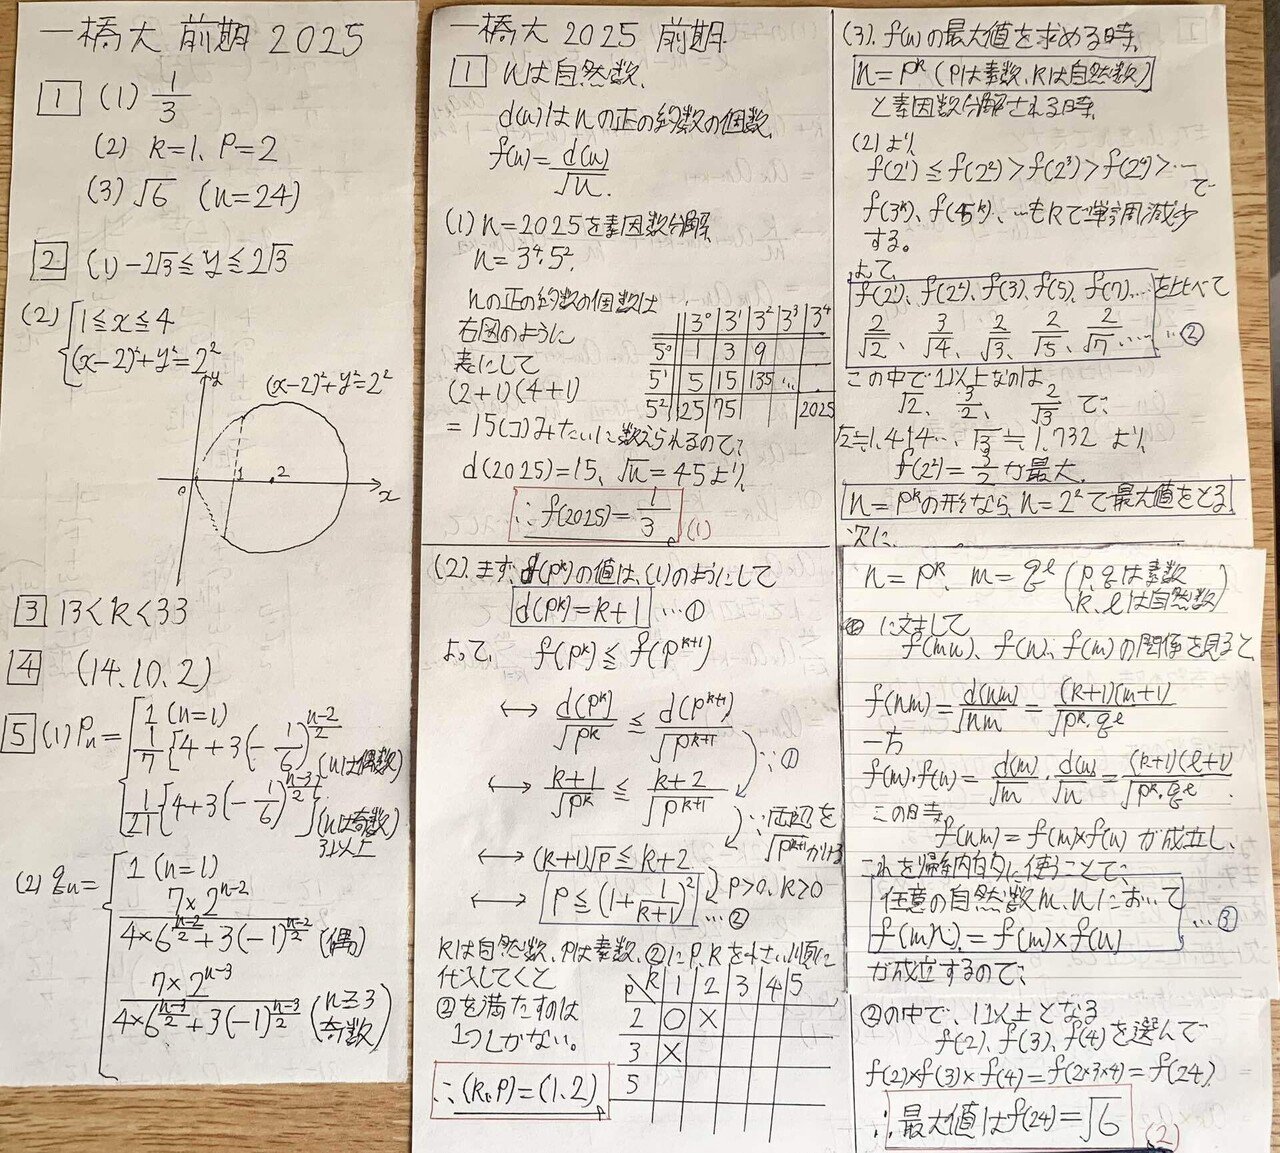 一橋大 前期 2025
1 (1) 1/3
(2) k=1、P=2
(3) √6 (n=24)
2 (1) -2√3 ≦ y ≦ 2√3
(2) { 1≦x≦4
(x-2)²+y²=2²
y
(x-2)²+y²=2²
0 1 2 x
3 13<k<33
4 (14.10.2)
5 (1) Pn = { 1 (n=1)
1/7 {4+3(-1/6)^((n-2)/2)} (nは偶数)
1/21 {4+3(-1/6)^((n-3)/2)} (nは奇数 3以上)
(2) qn = { 1 (n=1)
7×2^(n-2) / (4×6^((n-2)/2)+3(-1)^((n-2)/2)) (偶)
7×2^(n-3) / (4×6^((n-3)/2)+3(-1)^((n-3)/2)) (n≧3 奇数)
一橋大 2025 前期
1 nは自然数、
d(n)はnの正の約数の個数
f(n)=d(n)/√n.
(1) n=2025を素因数分解
n=3⁴・5².
nの正の約数の個数は
右図のように
表にして
(2+1)(4+1)
3⁰ 3¹ 3² 3³ 3⁴
5⁰ 1 3 9
5¹ 5 15 135 … .
5² 25 75 2025
=15(コ)みたいに数えられるので、
d(2025)=15、√n=45より
∴f(2025)=1/3 。(1)
(2). まず、f(p^k)の値は、(1)のようにして
d(p^k)=k+1 …①
よって、 f(p^k)≦f(p^(k+1))
↔ d(p^k)/√p^k ≦ d(p^(k+1))/√p^(k+1)
∵①
↔ (k+1)/√p^k ≦ (k+2)/√p^(k+1)
∵両辺を √p^(k+1)かける
↔ (k+1)√p ≦ k+2
↔ p≦(1+1/(k+1))² …②
p>0、k>0
kは自然数、pは素数、②にP、kを小さい順に
代入してくと
②を満たすのは
1つしかない。
p k 1 2 3 4 5
2 ○ ×
3 ×
5
∴(k,p)=(1.2)
(3). f(n)の最大値を求める時、
n=p^k (pは素数、kは自然数)
と素因数分解される時、
(2)より
f(2¹)≦f(2²)>f(2³)>f(2⁴)>… で
f(3^k)、f(5^k)、…もkで単調減少
する。
よって、
f(2¹)、f(2²)、f(3)、f(5)、f(7)… を比べて
2/√2、 3/√4、 2/√3、 2/√5、 2/√7、…… …②
この中で1以上なのは
√2、 3/2、 2/√3 で、
√2≒1.414…、√3≒1.732 より
f(2²)=3/2 が最大。
n=p^kの形なら、n=2²で最大値をとる
次に、
n=p^k、 m=q^ℓ (p,qは素数 k、ℓは自然数)
に対して
f(mn)、f(n)、f(m)の関係を見ると
f(nm)=d(nm)/√nm=(k+1)(m+1)/√p^k・q^ℓ
一方
f(m)・f(n)=d(m)/√m・d(n)/√n=(k+1)(ℓ+1)/√p^k・q^ℓ.
この時
f(nm)=f(m)×f(n) が成立し、
これを帰納的に使うことで、
任意の自然数m、nにおいて
f(mn)=f(m)×f(n) …③
が成立するので、
②の中で、1以上となる
f(2)、f(3)、f(4)を選んで
f(2)×f(3)×f(4)=f(2×3×4)=f(24)
∴最大値はf(24)=√6 (2)